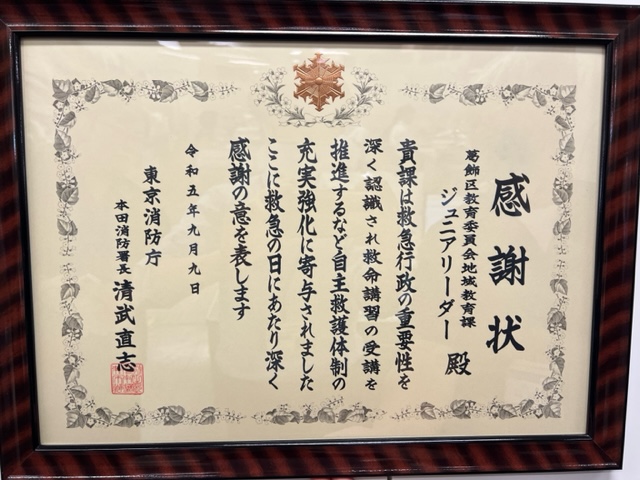 感謝状
葛飾区教育委員会地域教育課
ジュニアリーダー 殿
貴課は救急行政の重要性を
深く認識され救命講習の受講を
推進するなど自主救護体制の
充実強化に寄与されました
ここに救急の日にあたり深く
感謝の意を表します
令和五年九月九日
東京消防庁
本田消防署長 清武直志